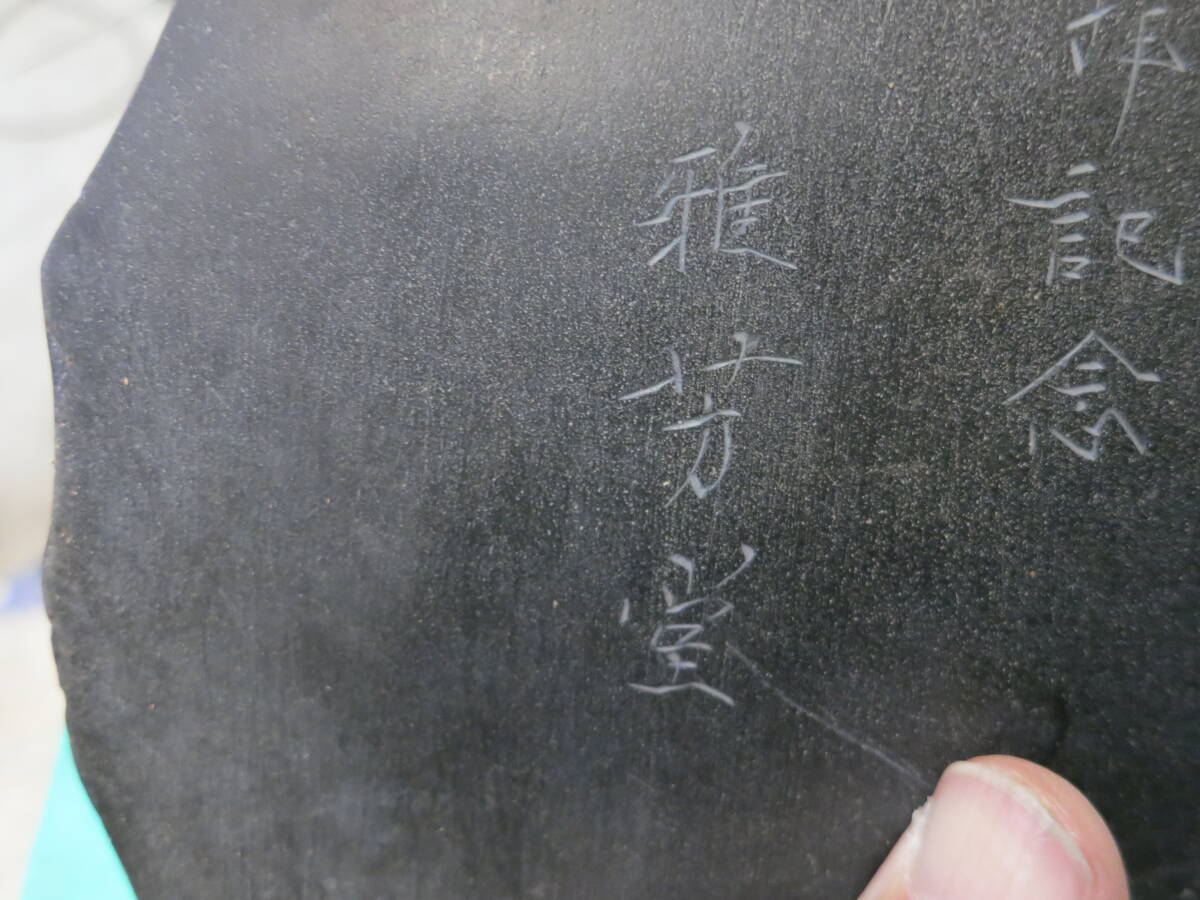 記念
雅芳堂